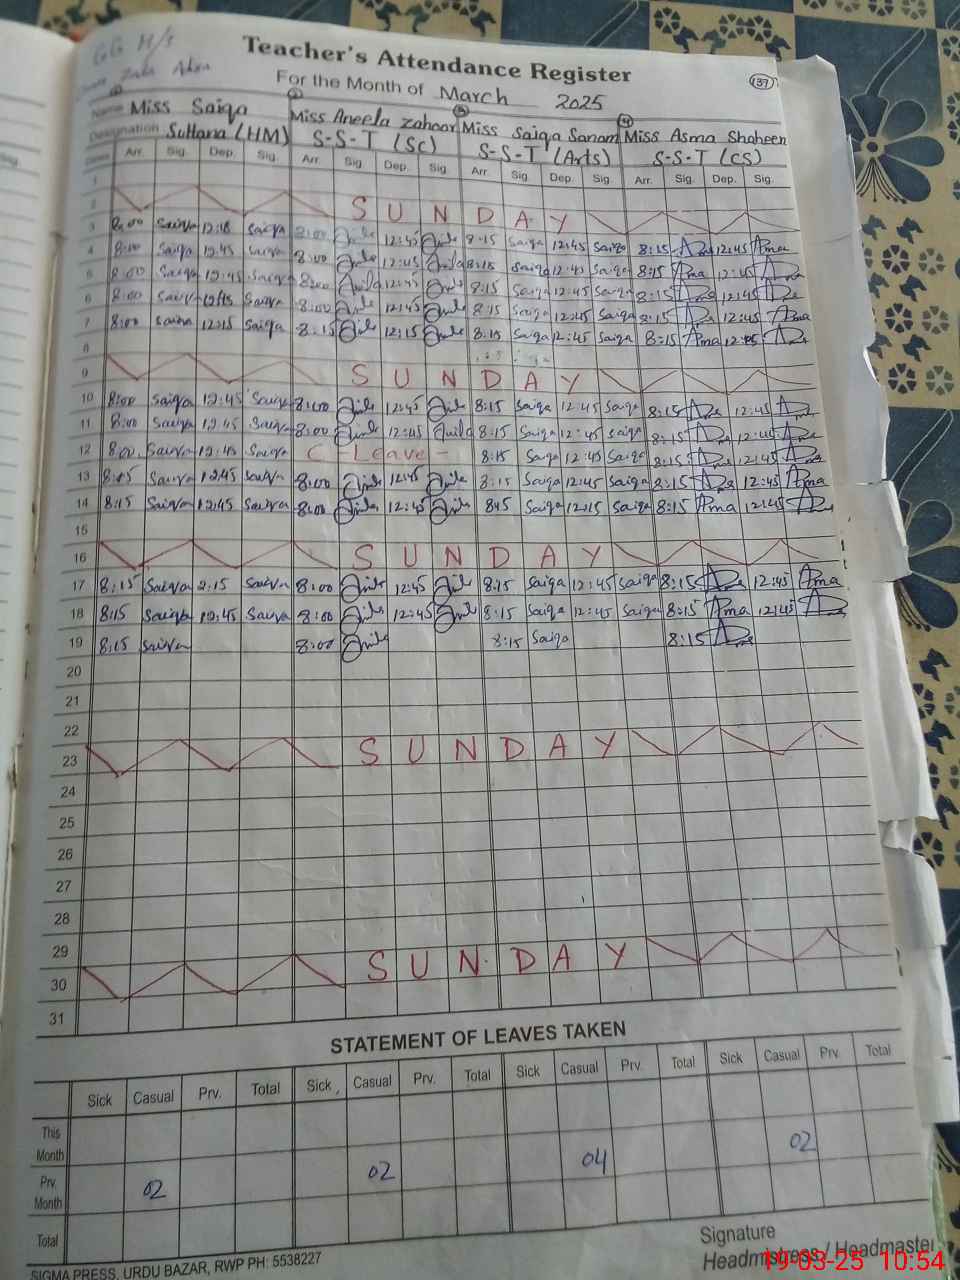 GG H/S
Teacher's Attendance Register
137
For the Month of March 2025
Name Miss Saiqa Miss Aneela Zahoor Miss Saiqa Sanam Miss Asma Shaheen
Designation Sultana (HM) S-S-T (Sc) S-S-T (Arts) S-S-T (CS)
Arr. Sig. Dep. Sig. Arr. Sig. Dep. Sig. Arr. Sig. Dep. Sig. Arr. Sig. Dep. Sig.
1
2 SUNDAY
3 8:00 Saiqa Saiqa 8:00 12:45 8:15 Saiqa 12:45 Saiqa 8:15 12:45 Asma
4 8:00 Saiqa 12:45 Saiqa 8:00 12:45 8:15 Saiqa 12:45 Saiqa 8:15 Asma 12:45
5 8:00 Saiqa 12:45 Saiqa 8:00 12:45 8:15 Saiqa 12:45 Saiqa 8:15 12:45
6 8:00 Saiqa Saiqa 8:00 12:45 8:15 Saiqa 12:45 Saiqa 8:15 12:45 Asma
7 8:00 Saiqa 12:15 Saiqa 8:15 12:15 8:15 Saiqa 12:45 Saiqa 8:15 Asma
8
9 SUNDAY
10 8:00 Saiqa 12:45 Saiqa 8:00 12:45 8:15 Saiqa 12:45 Saiqa 8:15 12:45
11 8:00 Saiqa 12:45 Saiqa 8:00 12:45 8:15 Saiqa 12:45 Saiqa 8:15 12:45
12 8:00 Saiqa 12:45 Saiqa C - Leave - 8:15 Saiqa 12:45 Saiqa 8:15 12:45
13 8:15 Saiqa 12:45 Saiqa 8:00 12:45 8:15 Saiqa 12:45 Saiqa 8:15 12:45 Asma
14 8:15 Saiqa 12:45 Saiqa 8:00 12:45 845 Saiqa 12:15 Saiqa 8:15 Asma 12:45
15
16 SUNDAY
17 8:15 Saiqa 2:15 Saiqa 8:00 12:45 8:15 Saiqa 12:45 Saiqa 8:15 12:45 Asma
18 8:15 Saiqa 12:45 Saiqa 8:00 12:45 8:15 Saiqa 12:45 Saiqa 8:15 Asma 12:45
19 8:15 Saiqa 8:00 8:15 Saiqa 8:15
20
21
22
23 SUNDAY
24
25
26
27
28
29
30 SUNDAY
31
STATEMENT OF LEAVES TAKEN
Sick Casual Prv. Total Sick Casual Prv. Total Sick Casual Prv. Total Sick Casual Prv. Total
This Month
Prv. Month 02 02 04 02
Total
Signature
Headmistress / Headmaster
SIGMA PRESS, URDU BAZAR, RWP PH: 5538227
19-03-25 10:54